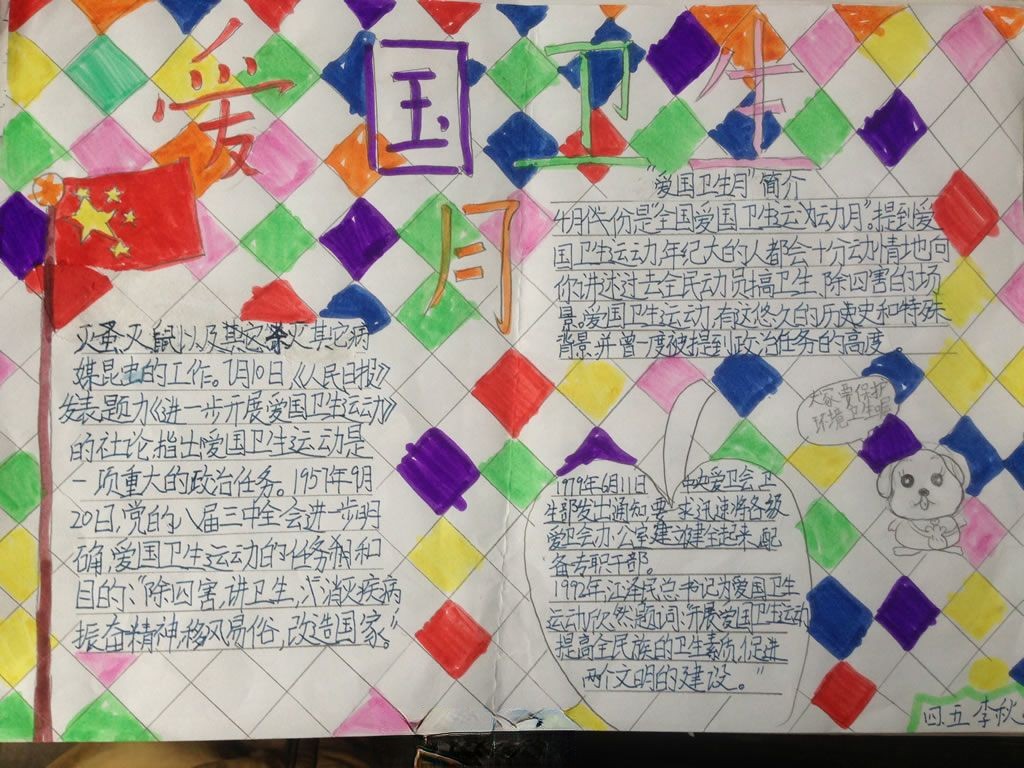 爱国卫生
月
"爱国卫生月"简介
4月份是"全国爱国卫生运动月"提到爱
国卫生运动,年纪大的人都会十分动情地向
你讲述过去全民动员搞卫生、除四害的场
景。爱国卫生运动,有这悠久的历史和特殊
背景,并曾一度被提到政治任务的高度。
灭蚤、灭鼠以及其它灭其它病
媒昆虫的工作。7月10日,《人民日报》
发表题为《进一步开展爱国卫生运动》
的社论,指出爱国卫生运动是
一项重大的政治任务。1957年9月
20日,党的八届三中全会进一步明
确,爱国卫生运动的任务和
目的:"除四害,讲卫生,消灭疾病
振奋精神,移风易俗,改造国家。"
大家要保护
环境卫生呢
1979年6月11日 中央爱卫会、卫
生部发出通知 要求迅速将各级
爱卫会办公室建立健全起来,配
备专职干部。
1992年江泽民总书记为爱国卫生
运动欣然题词:开展爱国卫生运动
提高全民族的卫生素质,促进
两个文明的建设。"
四.五 李秋